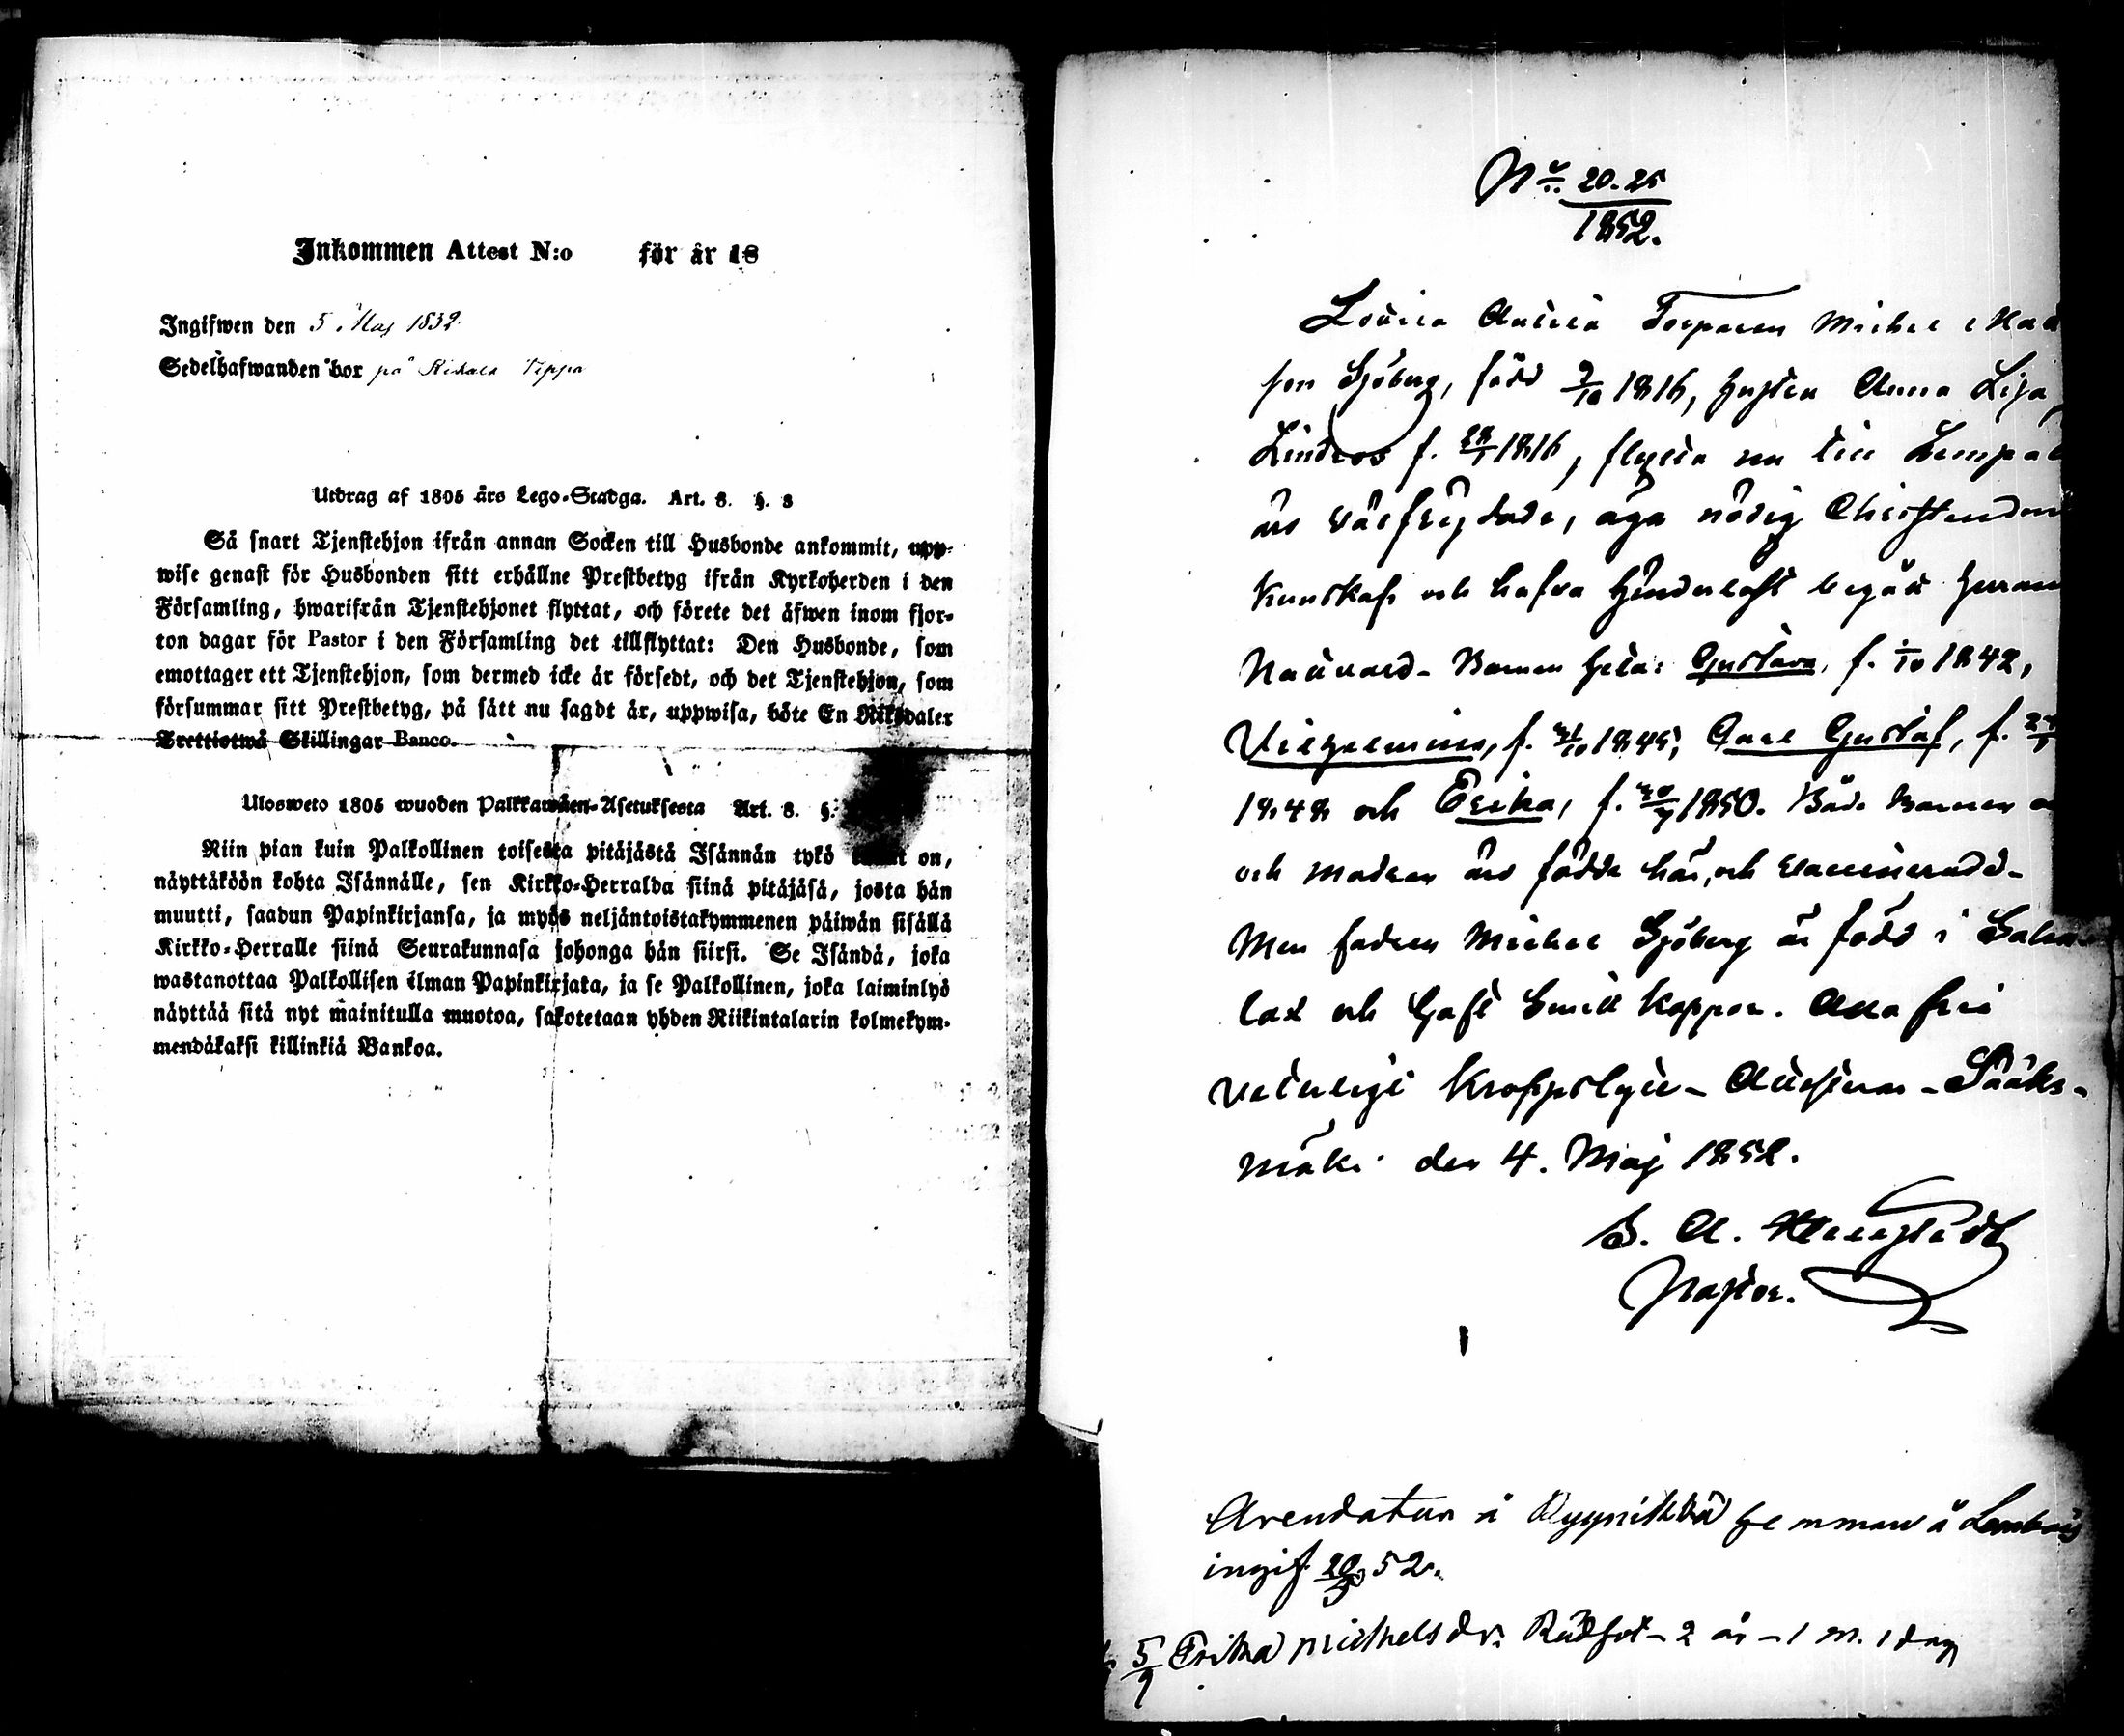 Inkommen Attest N:o för år 18
Ingifwen den 5 Maj 1832
Sedelhafwanden bor på Tippa
Utdrag af 1805 års Lego-Stadga. Art. 8. §. 8
Så snart Tjenstehjon ifrån annan Socken till Husbonde ankommit, upp-
wise genast för Husbonden sitt erhållne Prestbetyg ifrån Kyrkoherden i den
Församling, hwarifrån Tjenstehjonet flyttat, och förete det äfwen inom fjor-
ton dagar för Pastor i den Församling det tillflyttat: Den Husbonde, som
emottager ett Tjenstehjon, som dermed icke är försedt, och det Tjenstehjon, som
försummar sitt Prestbetyg, på sätt nu sagdt är, uppwisa, böte En Riksdaler
Trettiotwå Skillingar Banco.
Ulosweto 1805 wuoden Palkkawäen-Asetuksesta Art. 8. §.
Niin pian kuin Palkollinen toisesta pitäjästä Isännän tykö on,
näyttäköön kohta Isännälle, sen Kirkko-Herralda siinä pitäjäsä, josta hän
muutti, saadun Papinkirjansa, ja myös neljäntoistakymmenen päiwän sisällä
Kirkko-Herralle siinä Seurakunnasa johonga hän siirsi. Se Isändä, joka
wastanottaa Palkollisen ilman Papinkirjata, ja se Palkollinen, joka laiminlyö
näyttää sitä nyt mainitulla muotoa, sakotetaan yhden Riikintalarin kolmekym-
mendäkaksi killinkiä Bankoa.
No. 20.25
1852.
Torparen Michel
son Sjöberg, född 9/10 1816, hustru Anna Lisa
Lindros f. 28/1 1816, flytta nu till Lempä
äro wälfrejdade, äga nödig Christendoms
kunskap och hafva Hind. Nattvard begått
Nattvard. Barnen heta: Gustava, f. 1/10 1842,
Vilhelmina, f. /10 1845, Carl Gustaf, f.
1848 och Erika, f. 1850. Både Barnen
och modren äro födde här, och vaccinerade.
Men fadren Michel Sjöberg är född i Saha
lax och haft Smitt koppor. Alla fri
Veterligt kroppslyte. Attesterar. Sääks-
mäki den 4. Maj 1852.
B. A.
Pastor.
Arendatorn å hemman å
ingif. 20/5 52.
5/9 Erika Michelsdr. Rödsot - 2 år - 1 m. 1 dag